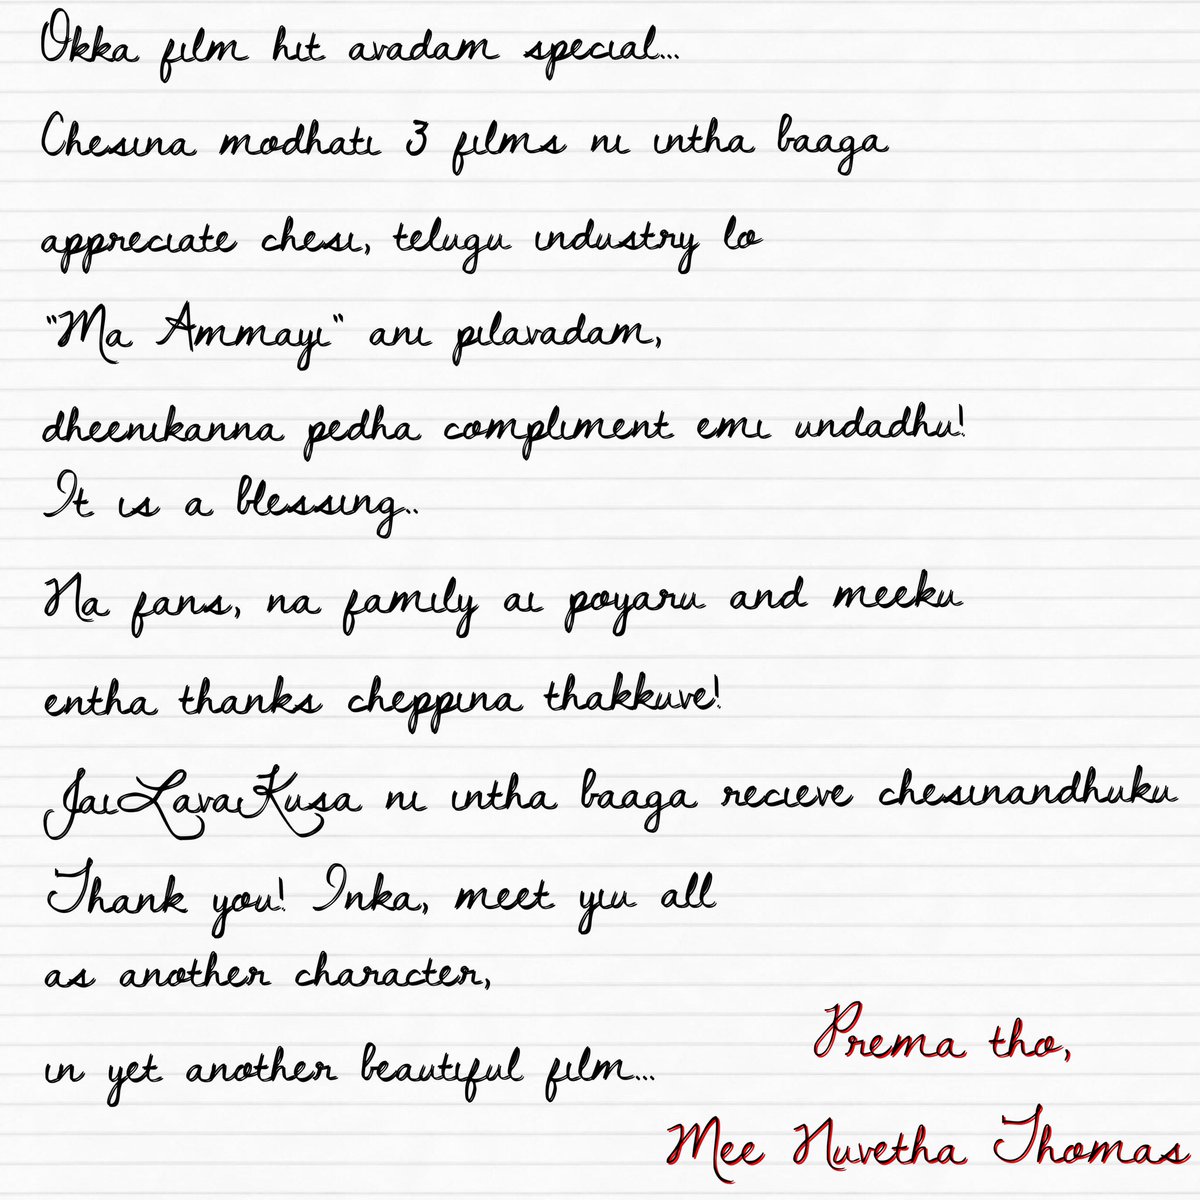 Okka film hit avadam special...
Chesina modhati 3 films ni intha baaga
appreciate chesi, telugu industry lo
"Ma Ammayi" ani pilavadam,
dheenikanna pedha compliment emi undadhu!
It is a blessing..
Na fans, na family ai poyaru and meeku
entha thanks cheppina thakkuve!
JaiLavaKusa ni intha baaga recieve chesinandhuku
Thank you! Inka, meet yiu all
as another character,
in yet another beautiful film...
Prema tho,
Mee Nivetha Thomas